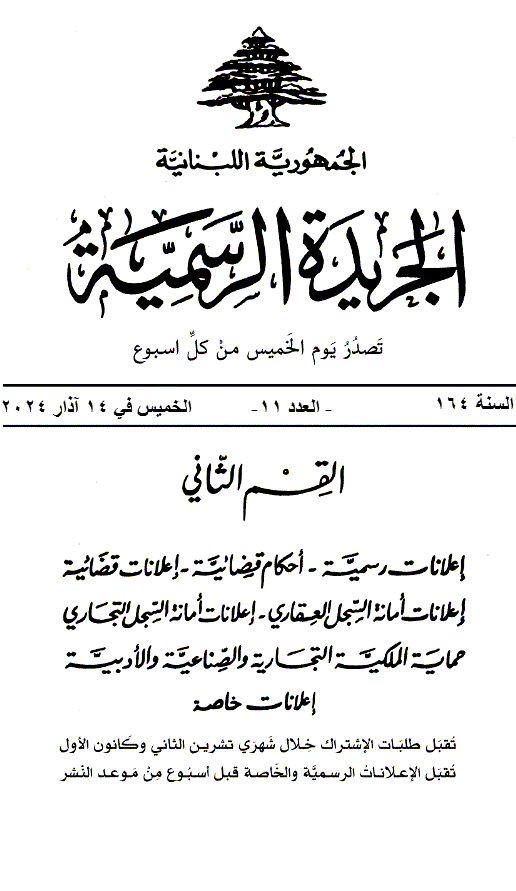 الجمهورية اللبنانية
الجريدة الرسمية
تصدر يوم الخميس من كل اسبوع
السنة ١٦٤ - العدد ١١ - الخميس في ١٤ آذار ٢٠٢٤
القسم الثاني
إعلانات رسمية - أحكام قضائية - إعلانات قضائية
إعلانات أمانة السجل العقاري - إعلانات أمانة السجل التجاري
حماية الملكية التجارية والصناعية والأدبية
إعلانات خاصة
تُقبَل طلبَات الإشتراك خِلال شَهرَي تشرين الثاني وكَانون الأول
تُقبَل الإعلاناتُ الرسميَّة والخَاصة قبل أسبُوع مِنْ مَوعد النَشر